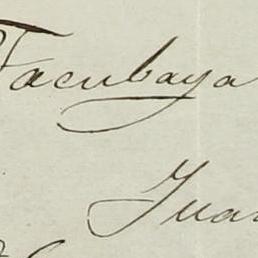 Tacubaya
Juan